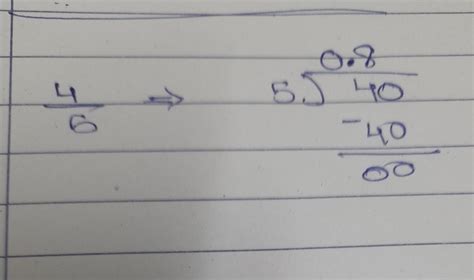 4/5 ⇒ 0.8
5)40
-40
00